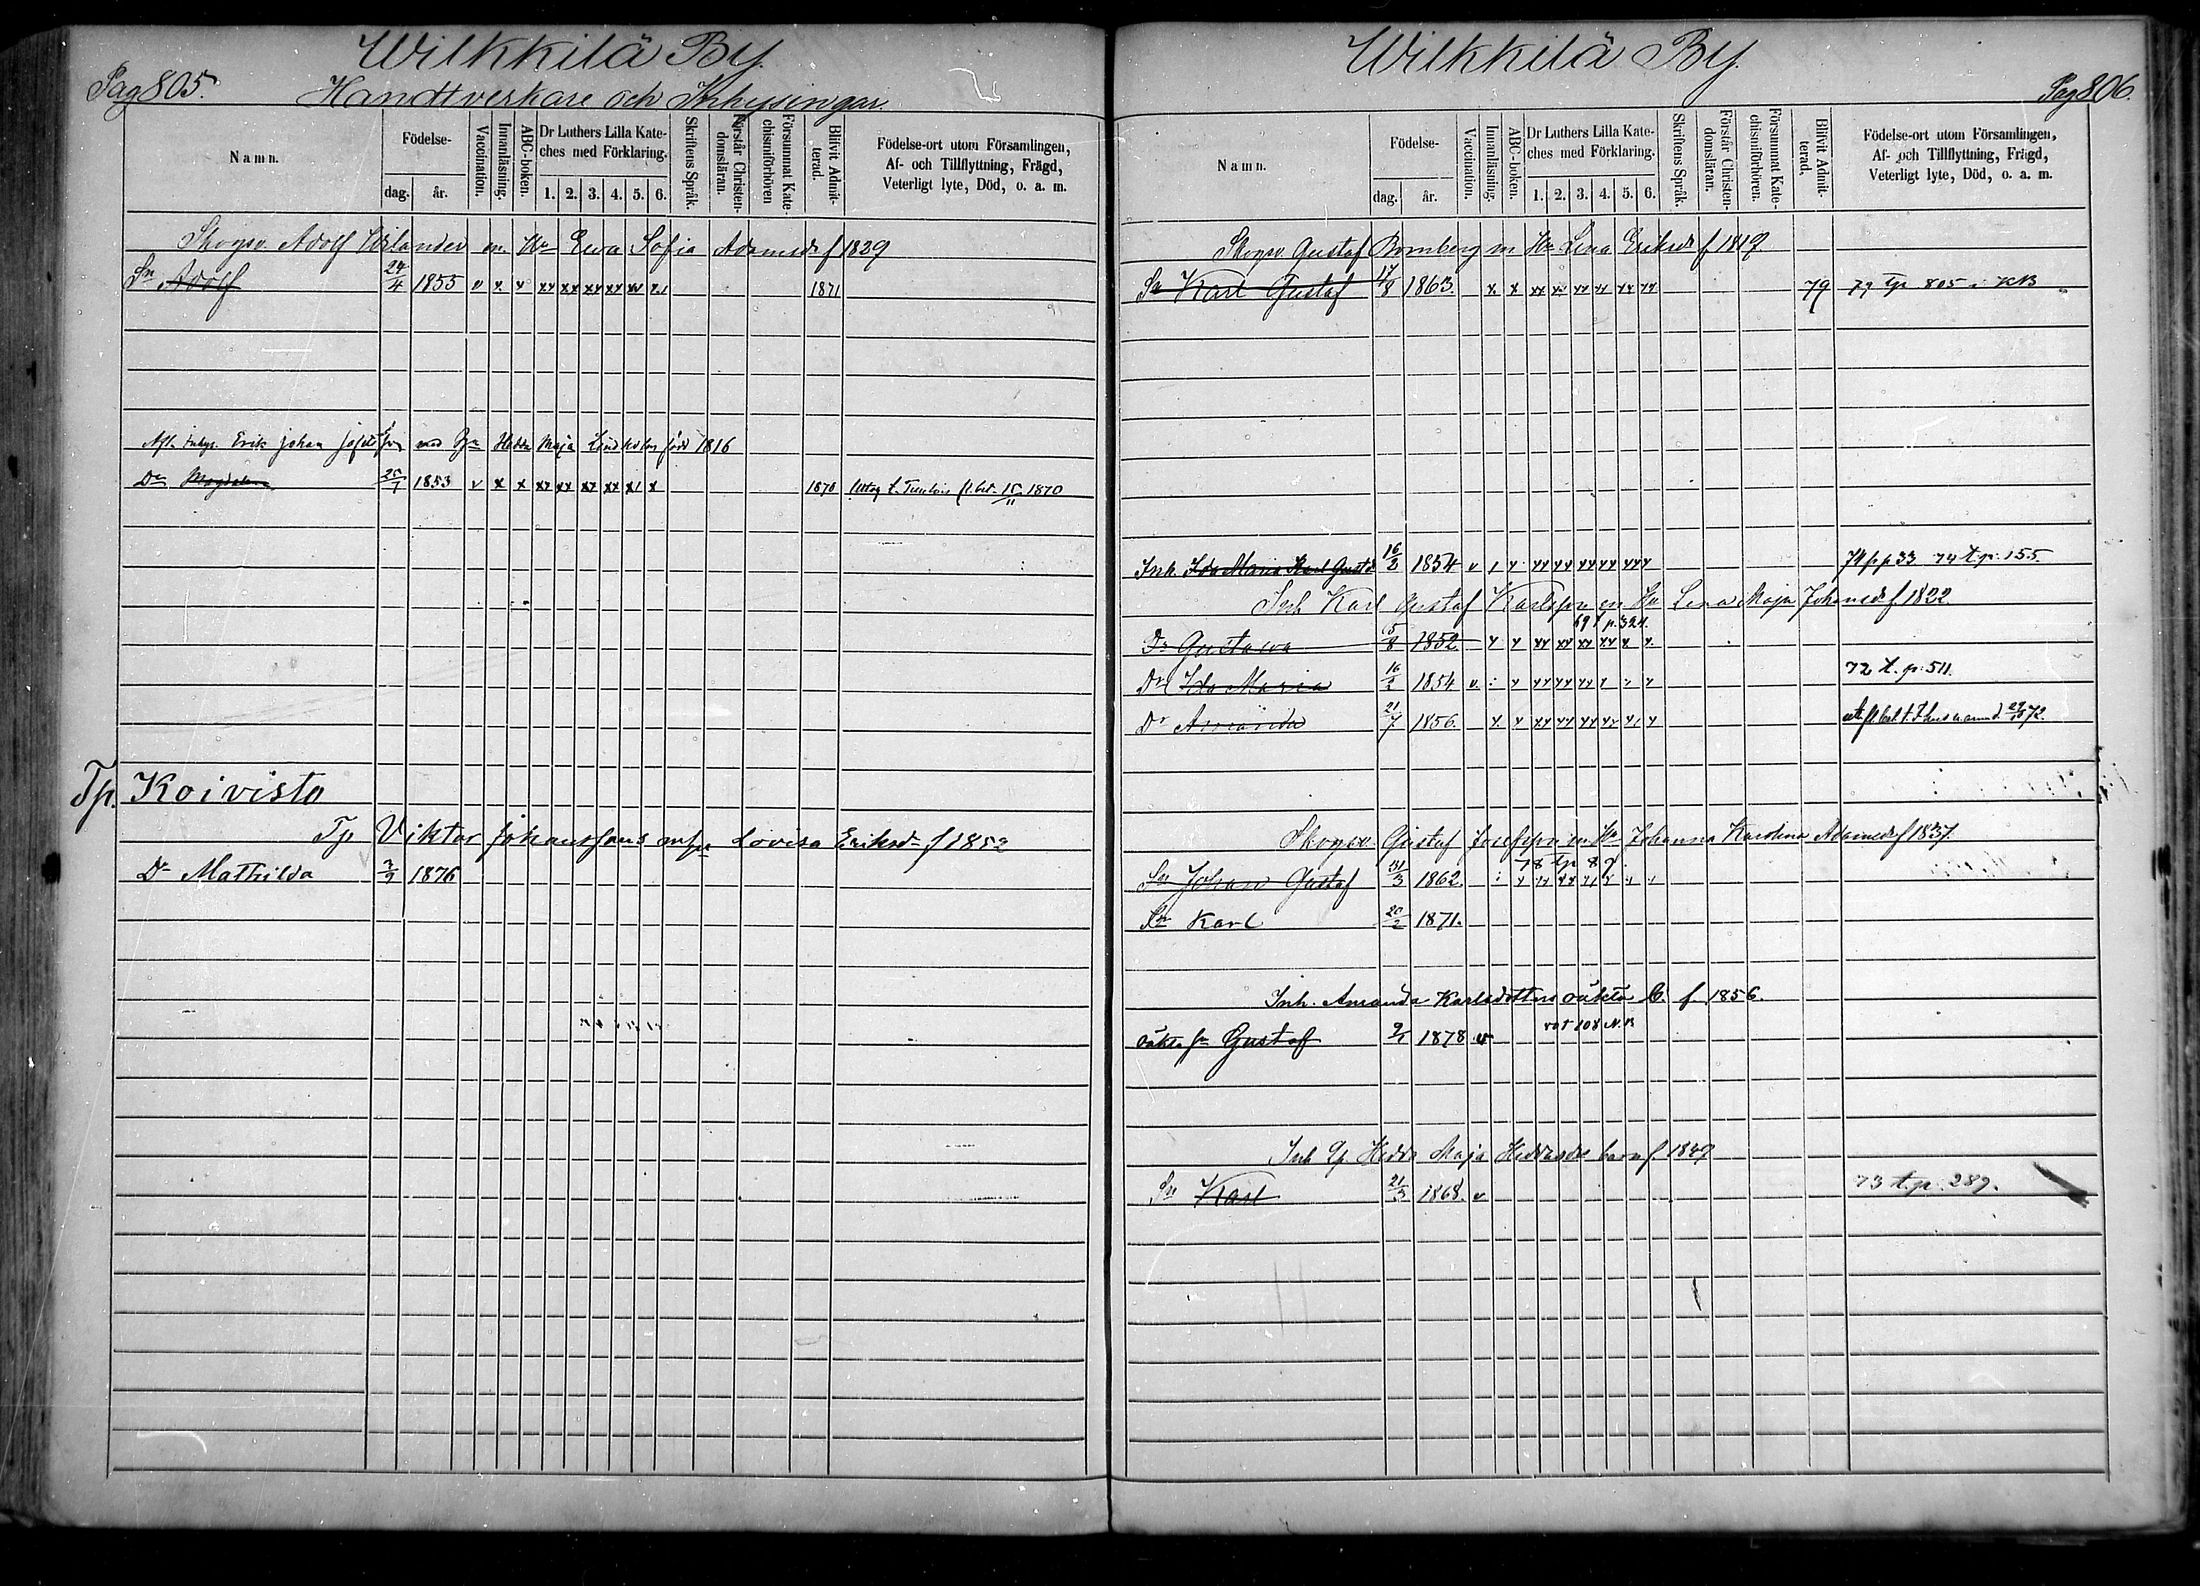 Wilkkilä By.
Pag 805.
Handtverkare och Inhysingar
Namn.
Födelse-
dag.
år.
Vaccination.
Innanläsning.
ABC-boken.
Dr Luthers Lilla Kate-
ches med Förklaring.
1. 2. 3. 4. 5. 6.
Skriftens Språk.
Förstår Christen-
domsläran.
Försummat Kate-
chismiförhören
Blifvit Admit-
terad.
Födelse-ort utom Församlingen,
Af- och Tillflyttning, Frägd,
Veterligt lyte, Död, o. a. m.
Skogsv. Adolf Wilander en. Hu Ewa Sofia Adamsdr f 1829
Sn Adolf 24/4 1855 v x x xx xx xx xx xx x1 1871
Afl. Inhys. Erik Johan med Hedda Maja född 1816
Dr Magdalena 25/7 1853 v x x x7 xx xx xx x1 x 1870 fl. bet. 15/11 1870
Tp. Koivisto
Tp Viktor Johanssons m hu Lovisa Eriksdr f 1852
Dr Mathilda 3/9 1876
Wilkkilä By.
Pag 806.
Namn.
Födelse-
dag.
år.
Vaccination.
Innanläsning.
ABC-boken.
Dr Luthers Lilla Kate-
ches med Förklaring.
1. 2. 3. 4. 5. 6.
Skriftens Språk.
Förstår Christen-
domsläran.
Försummat Kate-
chismiförhören.
Blifvit Admit-
terad.
Födelse-ort utom Församlingen,
Af- och Tillflyttning, Frägd,
Veterligt lyte, Död, o. a. m.
Skogsv. Gustaf Bomberg en Hu Lena Eriksdr f 1819
Sn Karl Gustaf 17/8 1863. x x xx xx xx xx xx xx 79 79 tp 805 i KB
Inh. Ida Maria Karl Gustd 16/2 1854 v 1 x xx xx xx xx xxx 74 fr p 33 74 t.p. 155.
Inh Karl Gustaf Karlsson en Hu Lena Maja Johansdr f. 1822.
69 t p. 324.
Dr Gustava 5/8 1852 x x xx xx xx xx x x
Dr Ida Maria 16/2 1854 v x xx xx xx x x 72 t. p. 511.
Dr Amanda 21/7 1856. x x xx xx xx xx x1 x fl. bet t. 29/10 72.
Skogsv. Gustaf Josefsson en Hu Johanna Karolina Adamsdr f 1837.
78 tp 89
Sn Johan Gustaf 31/3 1862. x xx xx x1 x x
Sn Karl 20/2 1871.
Inh. Amanda Karlsdotters oäkta b. f. 1856.
rot 108 N. B
oäkta sn Gustaf 9/1 1878 v
Inh Qp Hedda Maja Heddasdr barn f. 1839
Sn Karl 21/3 1868. v 73 t.p. 289.